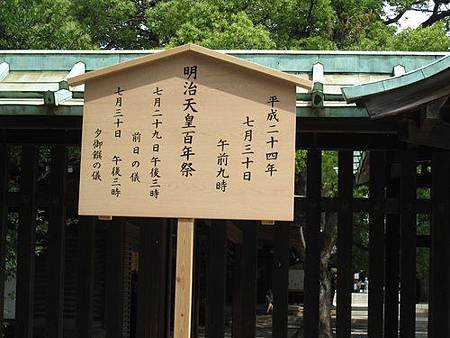 平成二十四年
七月三十日
午前九時
明治天皇百年祭
七月二十九日 午後三時
前日の儀
七月三十日 午後三時
夕御饌の儀